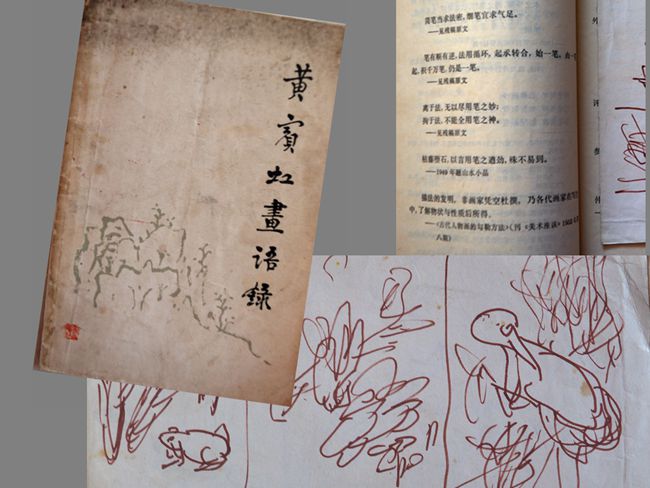 黄賓虹畫语錄
简笔当求法密，细笔宜求气足。
——见残稿原文
笔有顺有逆，法用循环，起承转合，始一笔。由一
起，积千万笔，仍是一笔。
——见残稿原文
离于法，无以尽用笔之妙；
拘于法，不能全用笔之神。
——见残稿原文
枯藤坠石，以言用笔之遒劲，殊不易到。
——1949年题山水小品
描法的发明，非画家凭空杜撰，乃各代画家在写
中，了解物状与性质后所得。
——《古代人物画的勾勒方法》（刊《美术座谈》
八期）
外